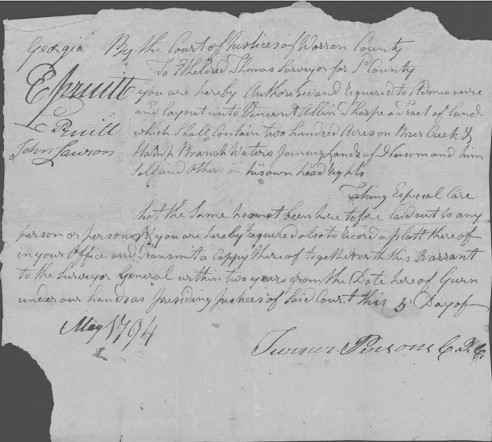 Georgia By the Court of Justices of Warren County
To Etheldred Thomas Surveyor for sd County
E Pruitt
you are hereby Authorised and Required to Admeasure
and layout unto Vincent Allin Tharpe a Tract of Land
L Pruitt
which Shall Contain two hundred Acres on Brier Creek &
John Lawson
Branch Waters Joining Lands of and him
Self and others on his own head Rights
Taking Especial Care
that the Same has not been here to fore laid out to any
person or persons & you are hereby Required also to Record a platt there of
in your Office and Transmit a Coppy there of together with this Warrant
to the Surveyor General within two years from the Date here of Given
under our hands as presiding Justices of Said Court this 5 Day of
May 1794
Turner Persons C.I.C.